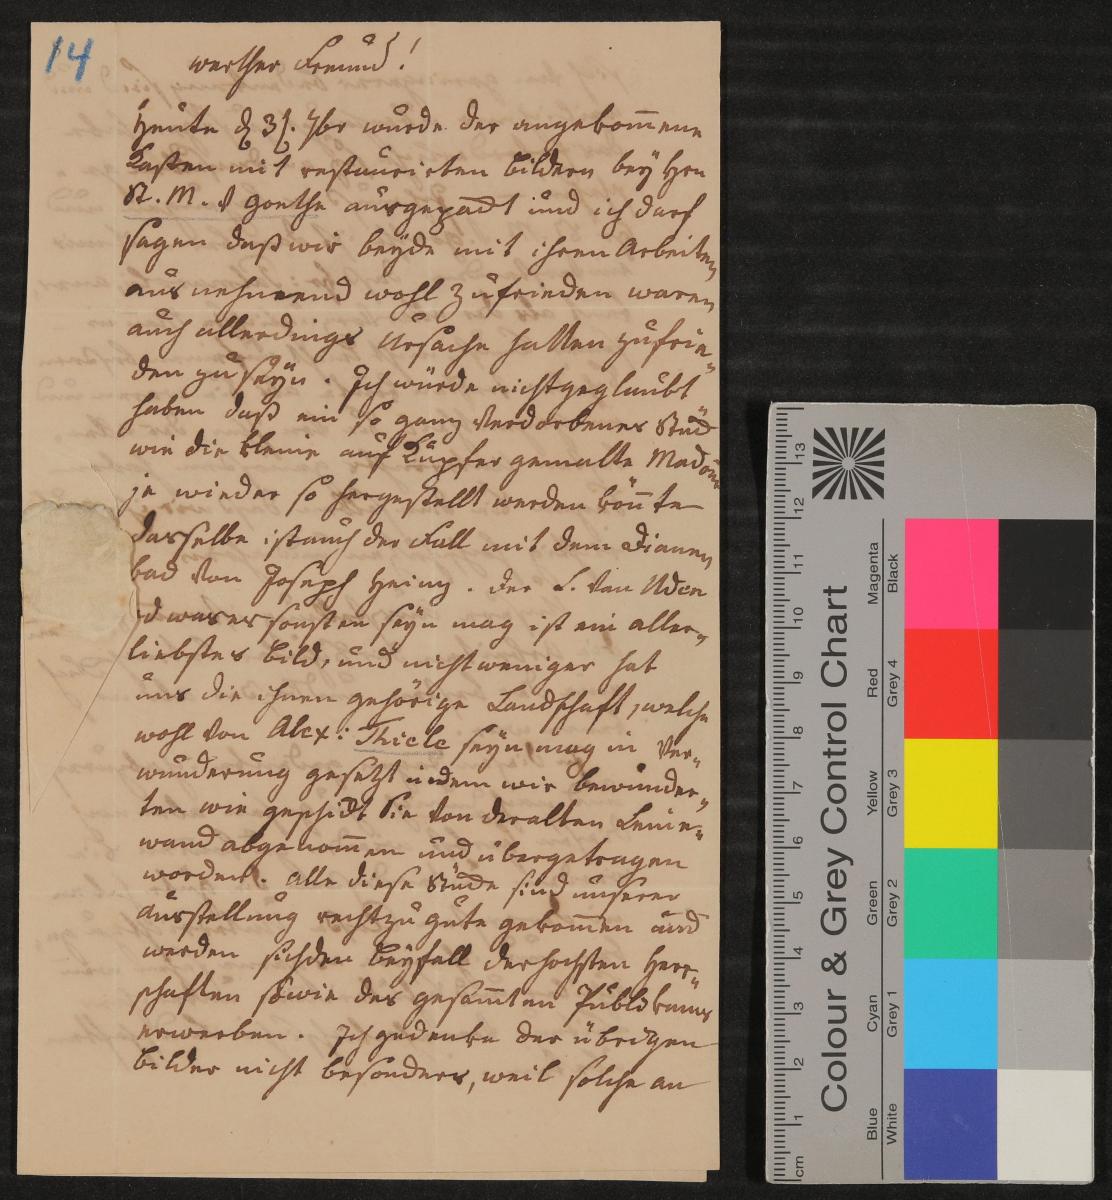 14
werther Freund!
Heute d 31. 7br wurde der angekom̄ene
Kasten mit restaurirten Bildern bey Hrn
St. M. v Goethe ausgepackt und ich darf
sagen daß wir beyde mit ihren Arbeiten
ausnehmend wohl zufrieden waren
auch allerdings Ursache hatten zufrie„
den zu seyn. Ich würde nicht geglaubt
haben daß ein so ganz verdorbenes Stück
wie die kleine auf Kupfer gemalte Madona
je wieder so hergestellt werden kön̄te
dasselbe ist auch der Fall mit dem Dianen
bad von Joseph Heinz. der L. van Uden
od was er sonsten seyn mag ist ein aller„
liebstes Bild, und nicht weniger hat
uns die ihnen gehörige Landschaft, welche
wohl von Alex: Thiele seyn mag in Ver„
wunderung gesetzt indem wir bewunder„
ten wie geschickt Sie von der alten Leine„
wand abgenom̄en und übergetragen
worden. Alle diese Stücke sind unserer
Ausstellung recht zu gute gekom̄en und
werden sich den Beyfall der höchsten Herr„
schaften sowie des gesam̄ten Publikums
erwerben. Ich gedenke der übrigen
Bilder nicht besonders, weil solche an
Colour & Grey Control Chart
Blue Cyan Green Yellow Red Magenta
White Grey 1 Grey 2 Grey 3 Grey 4 Black
cm 1 2 3 4 5 6 7 8 9 10 11 12 13